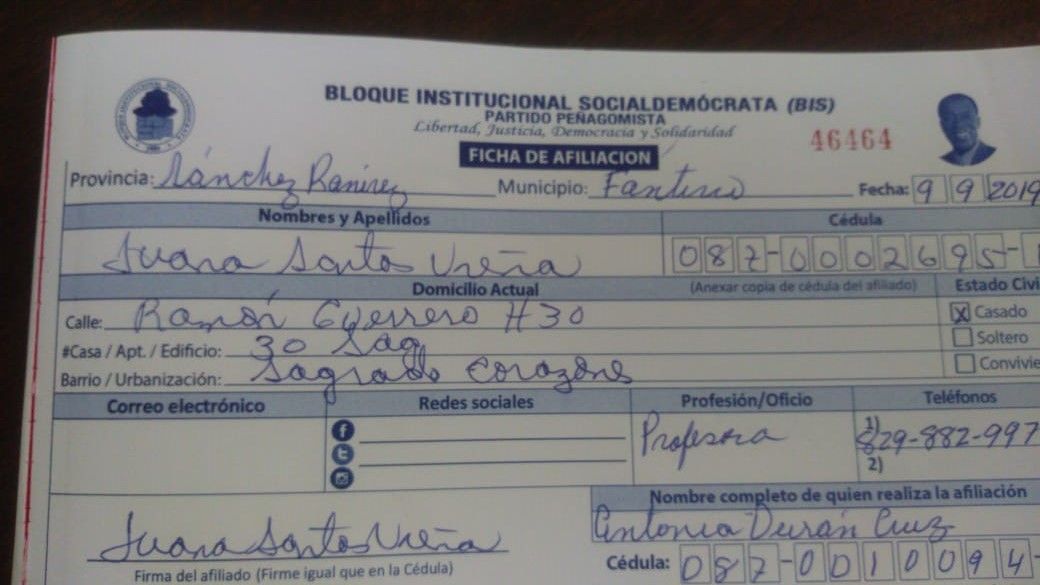 BLOQUE INSTITUCIONAL SOCIALDEMÓCRATA (BIS)
PARTIDO PEÑAGOMISTA
Libertad, Justicia, Democracia y Solidaridad
46464
FICHA DE AFILIACION
Provincia: Sánchez Ramirez Municipio: Fantino Fecha: 9 9 2019
Nombres y Apellidos Cédula
Juana Santos Ureña 087-0002695-
Domicilio Actual (Anexar copia de cédula del afiliado) Estado Civi
Calle: Ramón Guerrero #30 X Casado
#Casa / Apt. / Edificio: 30 Sag Soltero
Barrio / Urbanización: Sagrado Corazone Convivie
Correo electrónico Redes sociales Profesión/Oficio Teléfonos
Profesora 1) 829-882-997
2)
Nombre completo de quien realiza la afiliación
Juana Santos Ureña Antonia Durán Cruz
Firma del afiliado (Firme igual que en la Cédula) Cédula: 087-0010094-